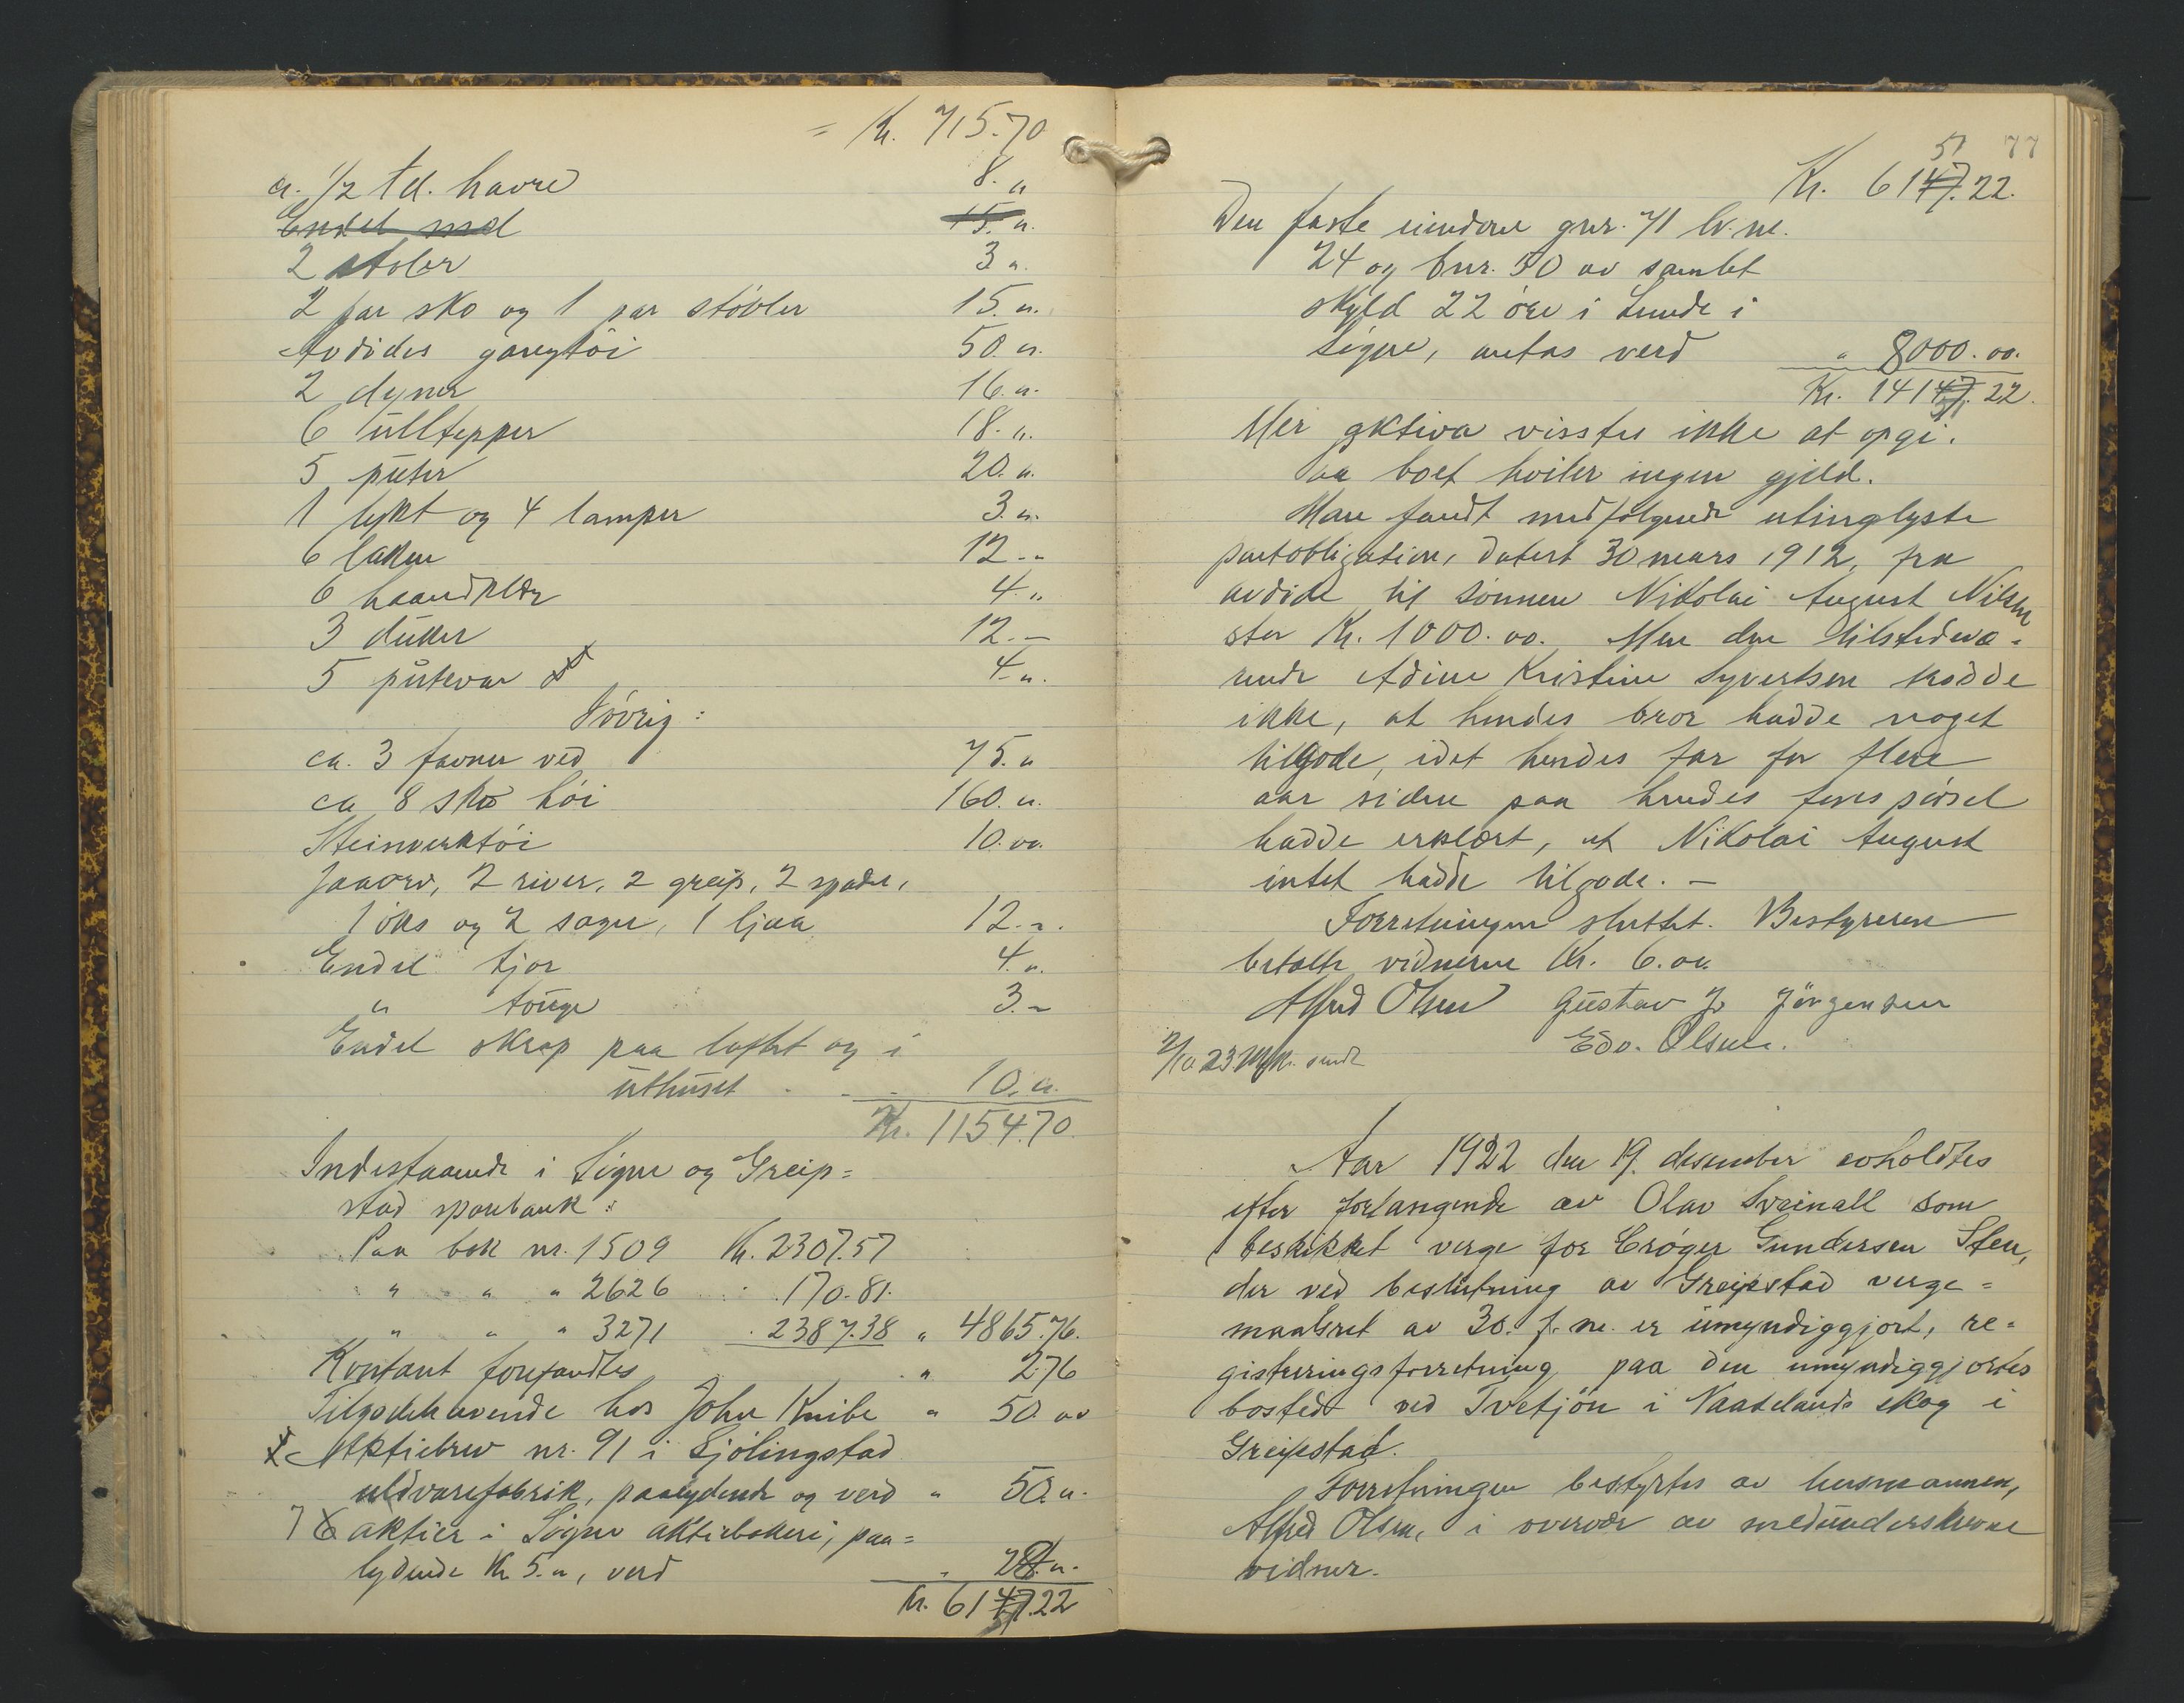 = Kr. 715.70
ca. 1/2 td. havre 8. "
Endel med 15. "
2 stoler 3 "
2 par sko og 1 par stövler 15. "
Avdödes gangtöi 50. "
2 dyner 16. "
6 ulltepper 18. "
5 puter 20. "
1 lykt og 4 lamper 3. "
6 laken 12 - "
6 haandklær 4. "
3 duker 12. -
5 putevar 4. "
Iövrig:
ca. 3 favner ved 75. "
ca 8 skø höi 160. "
Steinverktöi 10. oo.
1 öks og 2 sager, 1 ljaa 12. -
Endel tjor 4. "
" tönge 3. -
Endel skrap paa loftet og i
uthuset 10. "
Kr. 1154.70
Indestaaende i Sögne og Greip=
stad sparebank:
Paa bok nr. 1509 Kr. 2307.57
" " " 2626 " 170.81.
" " " 3271 " 2387.38 " 4865.76.
Kontant forefandtes " 2.76
Tilgodehavende hos John Knibe " 50. oo
Aktiebrev nr. 91 i Sjölingstad
uldvarefabrik, paalydende og verd " 50. "
7 6 aktier i Sögne aktiebakeri, paa=
lydende Kr 5. ", verd " 28. "
Kr. 6147.22
51
77
51
Kr. 6147.22.
Den faste eiendom gnr. 71 br.nr.
24 og bnr. 50 av samlet
skyld 22 öre i Lunde i
Sögne, antas verd " 8000. oo.
Kr. 14147.22.
51
Mer aktiva visstes ikke at opgi.
Paa boet hviler ingen gjeld.
Man fandt medfölgende utinglyste
pantobligation, datert 30 mars 1912, fra
avdöde til sönnen Nikolai August Nilsen
stor Kr. 1000. oo. Men den tilstedevæ=
rende Adine Kristine Syvertsen trodde
ikke, at hendes bror hadde noget
tilgode, idet hendes far for flere
aar siden paa hendes forespörsel
hadde erklært, at Nikolai August
intet hadde tilgode. -
Forretningen sluttet. Bestyreren
betalte vidnerne Kr. 6. oo.
Alfred Olsen Gustav J. Jörgensen
Edv. Olsen.
2/10 23 sendt
Aar 1922 den 19. desember avholdtes
efter forlangende av Olav Sveinall som
beskikket verge for Tröger Gundersen Steu,
der ved beslutning av Greipstad verge=
maalsret av 30. f. m. er umyndiggjort, re=
gistreringsforretning paa den umyndiggjortes
bosted ved Tvetjön i Naadelands skog i
Greipstad.
Forretningen bestyrtes av lensmannen,
Alfred Olsen, i overvær av medunderskrevne
vidner.